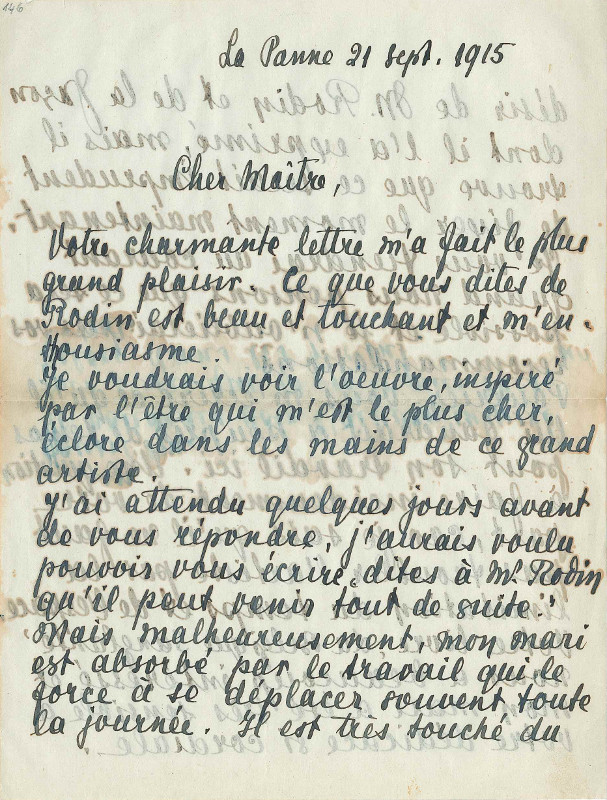 146
La Panne 21 sept. 1915
Cher Maître,
Votre charmante lettre m'a fait le plus
grand plaisir. Ce que vous dites de
Rodin est beau et touchant et m'en-
thousiasme.
Je voudrais voir l'oeuvre, inspiré
par l'être qui m'est le plus cher,
éclore dans les mains de ce grand
artiste.
J'ai attendu quelques jours avant
de vous répondre, j'aurais voulu
pouvoir vous écrire "dites à Mr. Rodin
qu'il peut venir tout de suite."
Mais malheureusement, mon mari
est absorbé par le travail qui le
force à se déplacer souvent toute
la journée. Il est très touché du